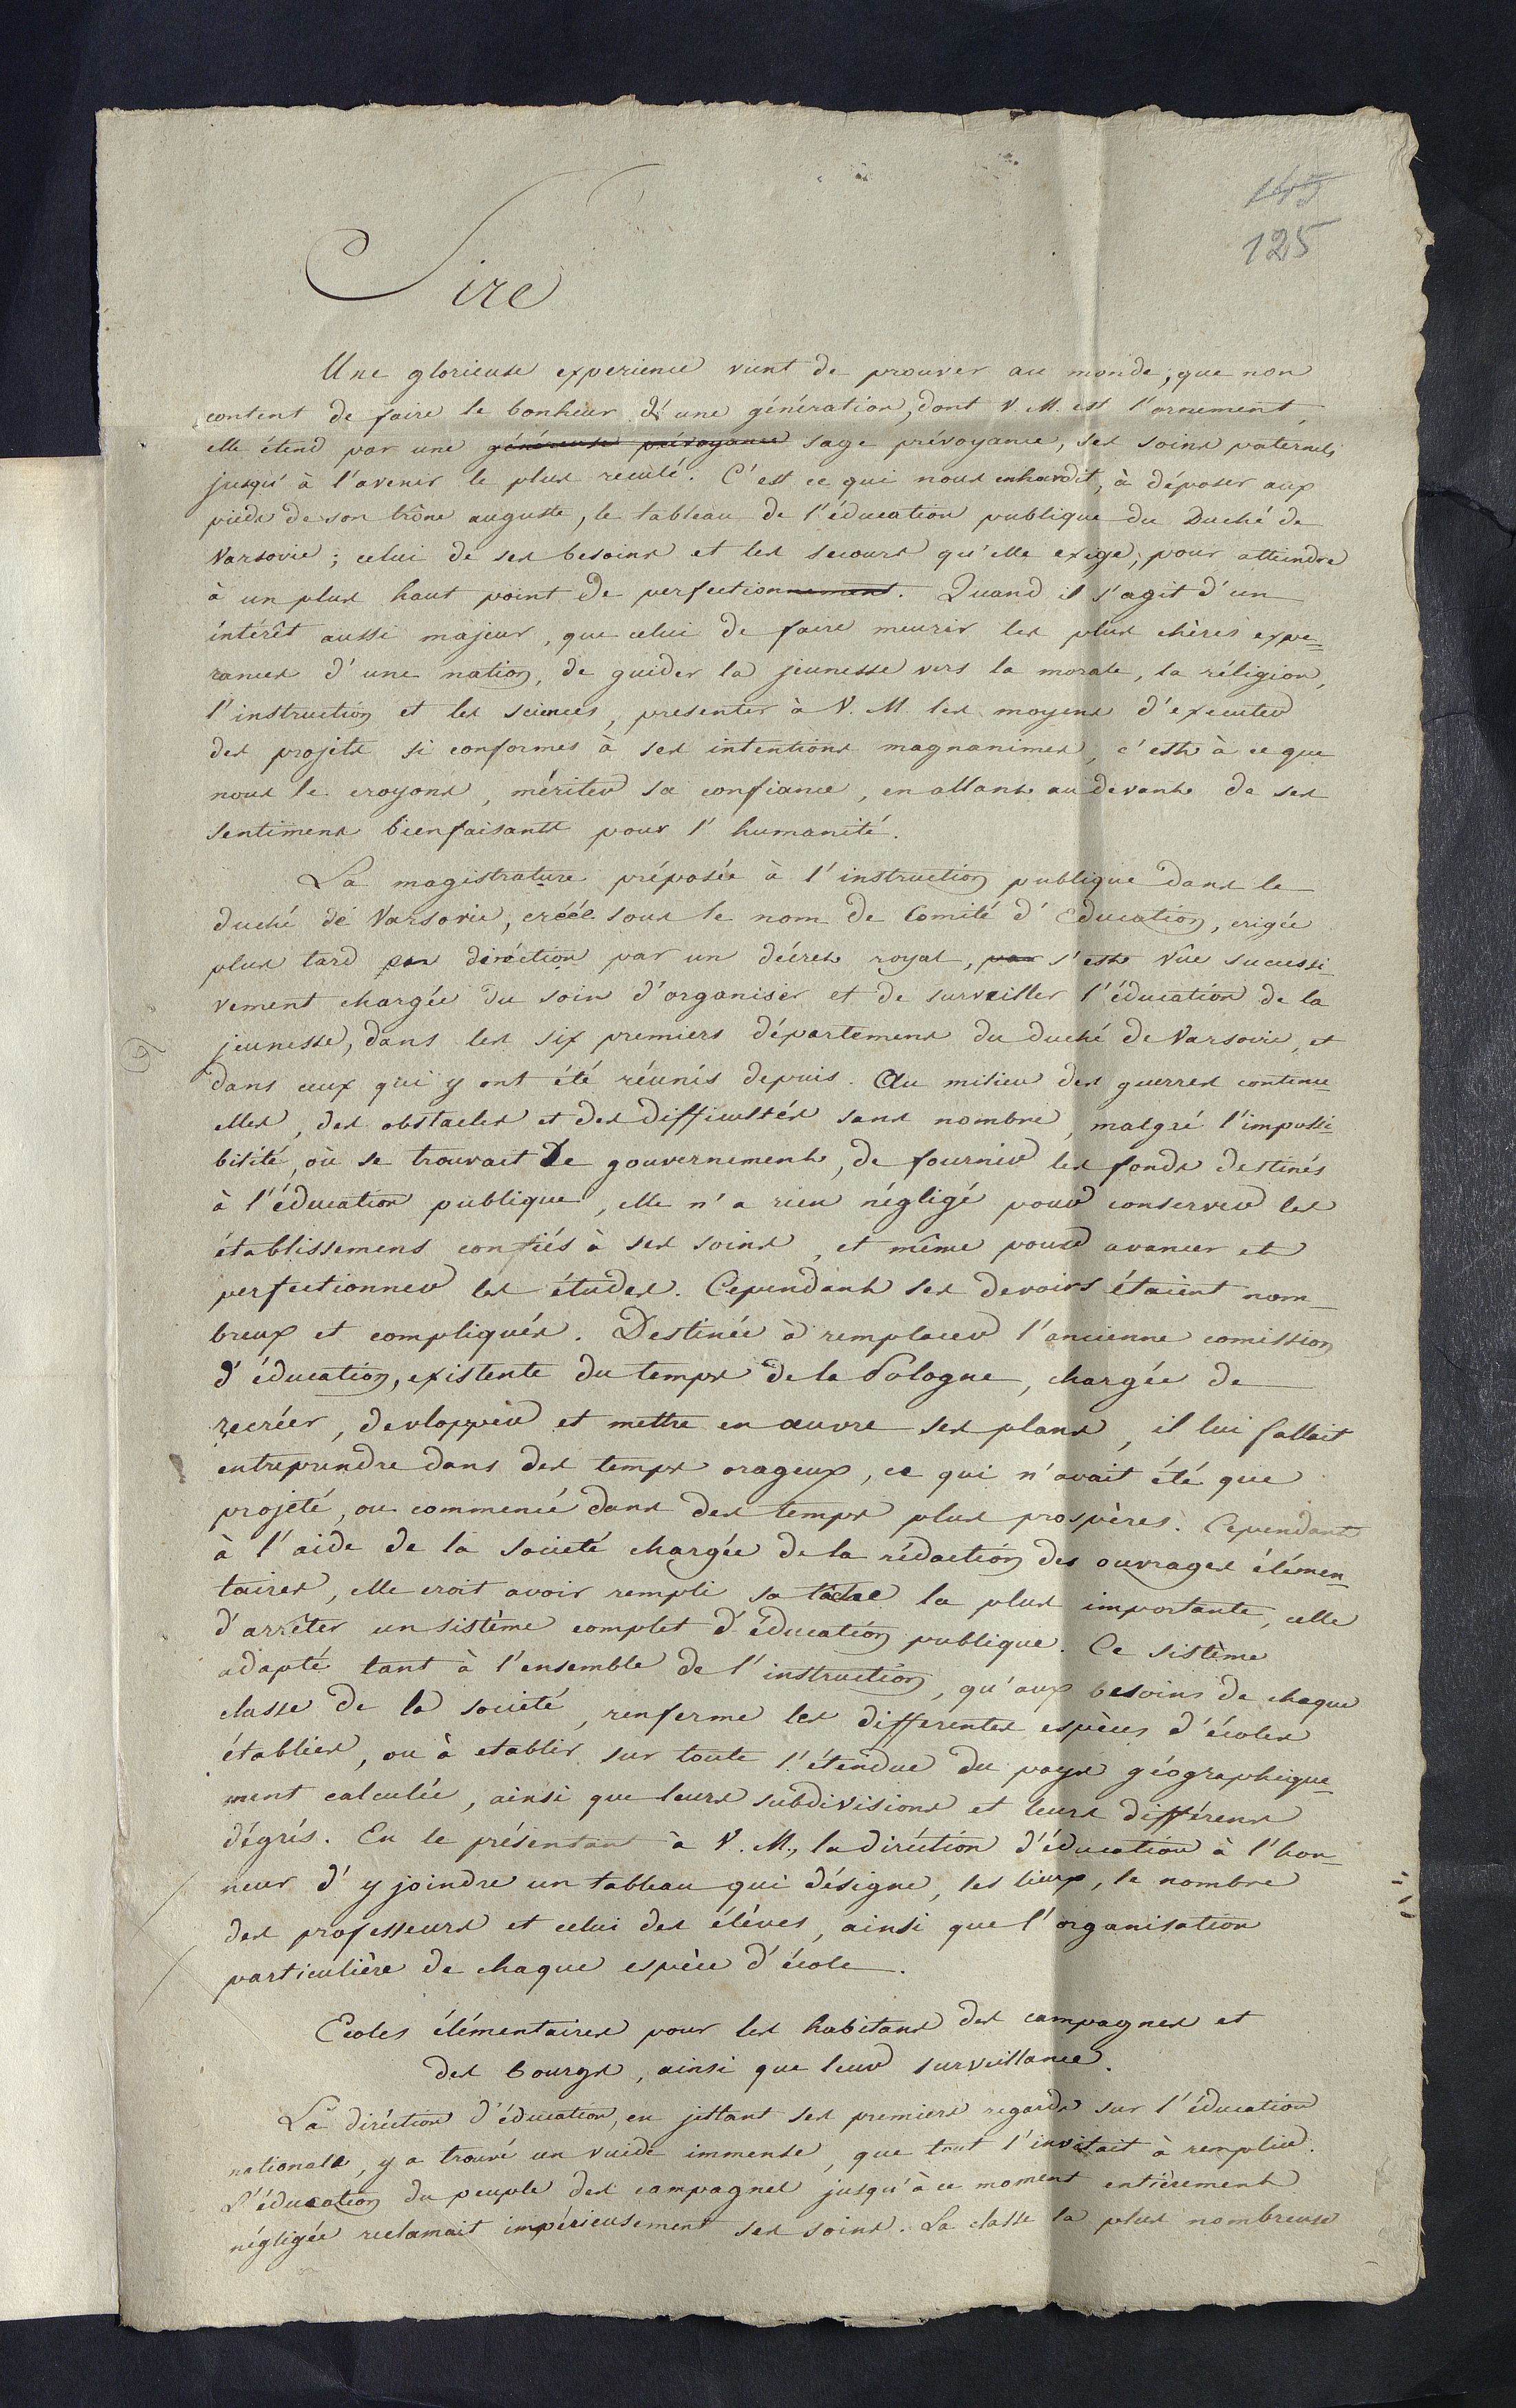 145
125
Sire
Une glorieuse experience vient de prouver au monde, que non
content de faire le bonheur d'une génération, dont V. M. est l'ornement,
elle étend par une généreuse prévoyance sage prévoyance, ses soins paternels
jusqu'à l'avenir le plus reculé. C'est ce qui nous enhardit, à déposer aux
pieds de son trône auguste, le tableau de l'éducation publique du Duché de
Varsovie; celui de ses besoins et les secours qu'elle exige, pour atteindre
à un plus haut point de perfectionnement. Quand il s'agit d'un
intérêt aussi majeur, que celui de faire meurir les plus chères espe=
rances d'une nation, de guider la jeunesse vers la morale, la réligion,
l'instruction et les sciences, presenter à V. M les moyens d'executer
des projets si conformes à ses intentions magnanimes, c'est à ce que
nous le croyons, mériter sa confiance, en allant au devant de ses
sentimens bienfaisants pour l'humanité.
La magistrature préposée à l'instruction publique dans le
duché de Varsovie, créée sous le nom de Comité d'Education, erigée
plus tard en diréction par un décret royal, par s'est vûe successi
vement chargée du soin d'organiser et de surveiller l'éducation de la
jeunesse, dans les six premiers départemens du duché de Varsovie, et
dans ceux qui y ont été réunis depuis. Au milieu des guerres continu=
elles, des obstacles et des difficultés sans nombre, malgré l'impossi=
bilité, où se trouvait le gouvernement, de fournir les fonds destinés
à l'éducation publique, elle n'a rien négligé pour conserver les
établissemens confiés à ses soins, et même pour avancer et
perfectionner les études. Cependant ses devoirs étaient nom_
breux et compliqués. Destinée à remplacer l'ancienne comission
d'éducation, existente du temps de la Pologne, chargée de
recréer, devlopper et mettre en œuvre ses plans, il lui fallait
entreprendre dans des temps orageux, ce qui n'avait été que
projeté, ou commencé dans des temps plus prospères. Cependant
à l'aide de la societé chargée de la rédaction des ouvrages élémen_
taires, elle croit avoir rempli sa tâche la plus importante, celle
d'arrêter un sistème complet d'éducation publique. Ce sistème
adapté tant à l'ensemble de l'instruction, qu'aux besoins de chaque
classe de la societé, renferme les differentes espèces d'écoles
établies, ou à etablir sur toute l'étendue du pays géographique_
ment calculée, ainsi que leurs subdivisions et leurs différens
dégrés. En le présentant à V. M., la diréction d'éducation à l'hon_
neur d'y joindre un tableau qui désigne, les lieux, le nombre
des professeurs et celui des élèves, ainsi que l'organisation
particulière de chaque espèce d'école.
Ecoles élémentaires pour les habitans des campagnes et
des bourgs, ainsi que leur surveillance.
La diréction d'éducation, en jettant ses premiers regards sur l'éducation
nationale, y a trouvé un vuide immense, que tout l'invitait à remplir.
L'éducation du peuple des campagnes jusqu'à ce moment entièrement
négligée reclamait impérieusement ses soins. La classe la plus nombreuse